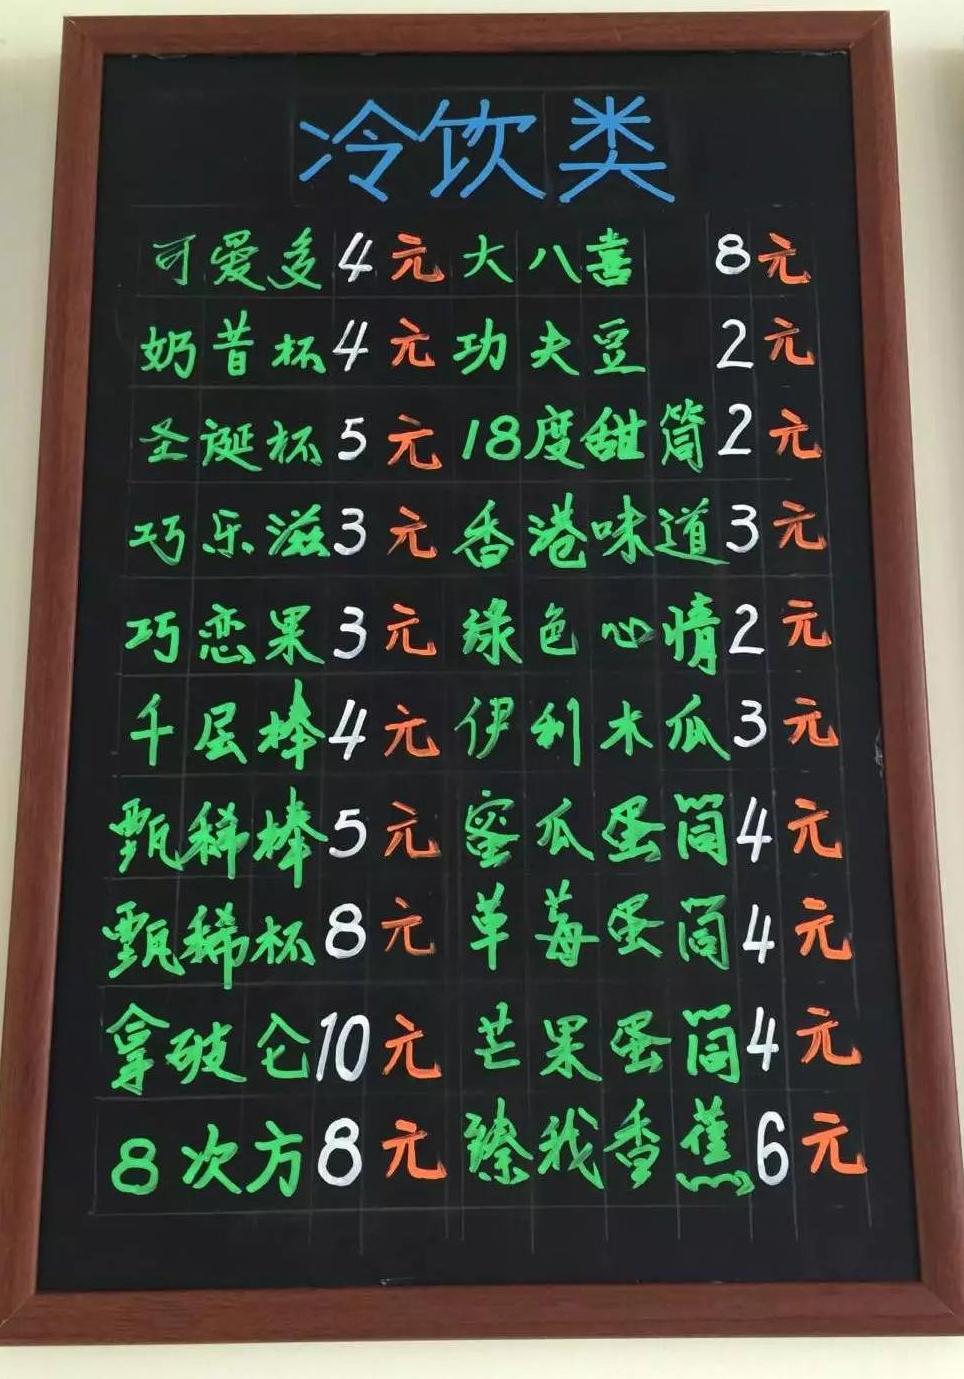 冷饮类
可爱多4元 大八喜 8元
奶昔杯4元 功夫豆 2元
圣诞杯5元 18度甜筒2元
巧乐滋3元 香港味道3元
巧恋果3元 绿色心情2元
千层棒4元 伊利木瓜3元
甄稀棒5元 蜜瓜蛋筒4元
甄稀杯8元 草莓蛋筒4元
拿破仑10元 芒果蛋筒4元
8次方8元 臻我香蕉6元